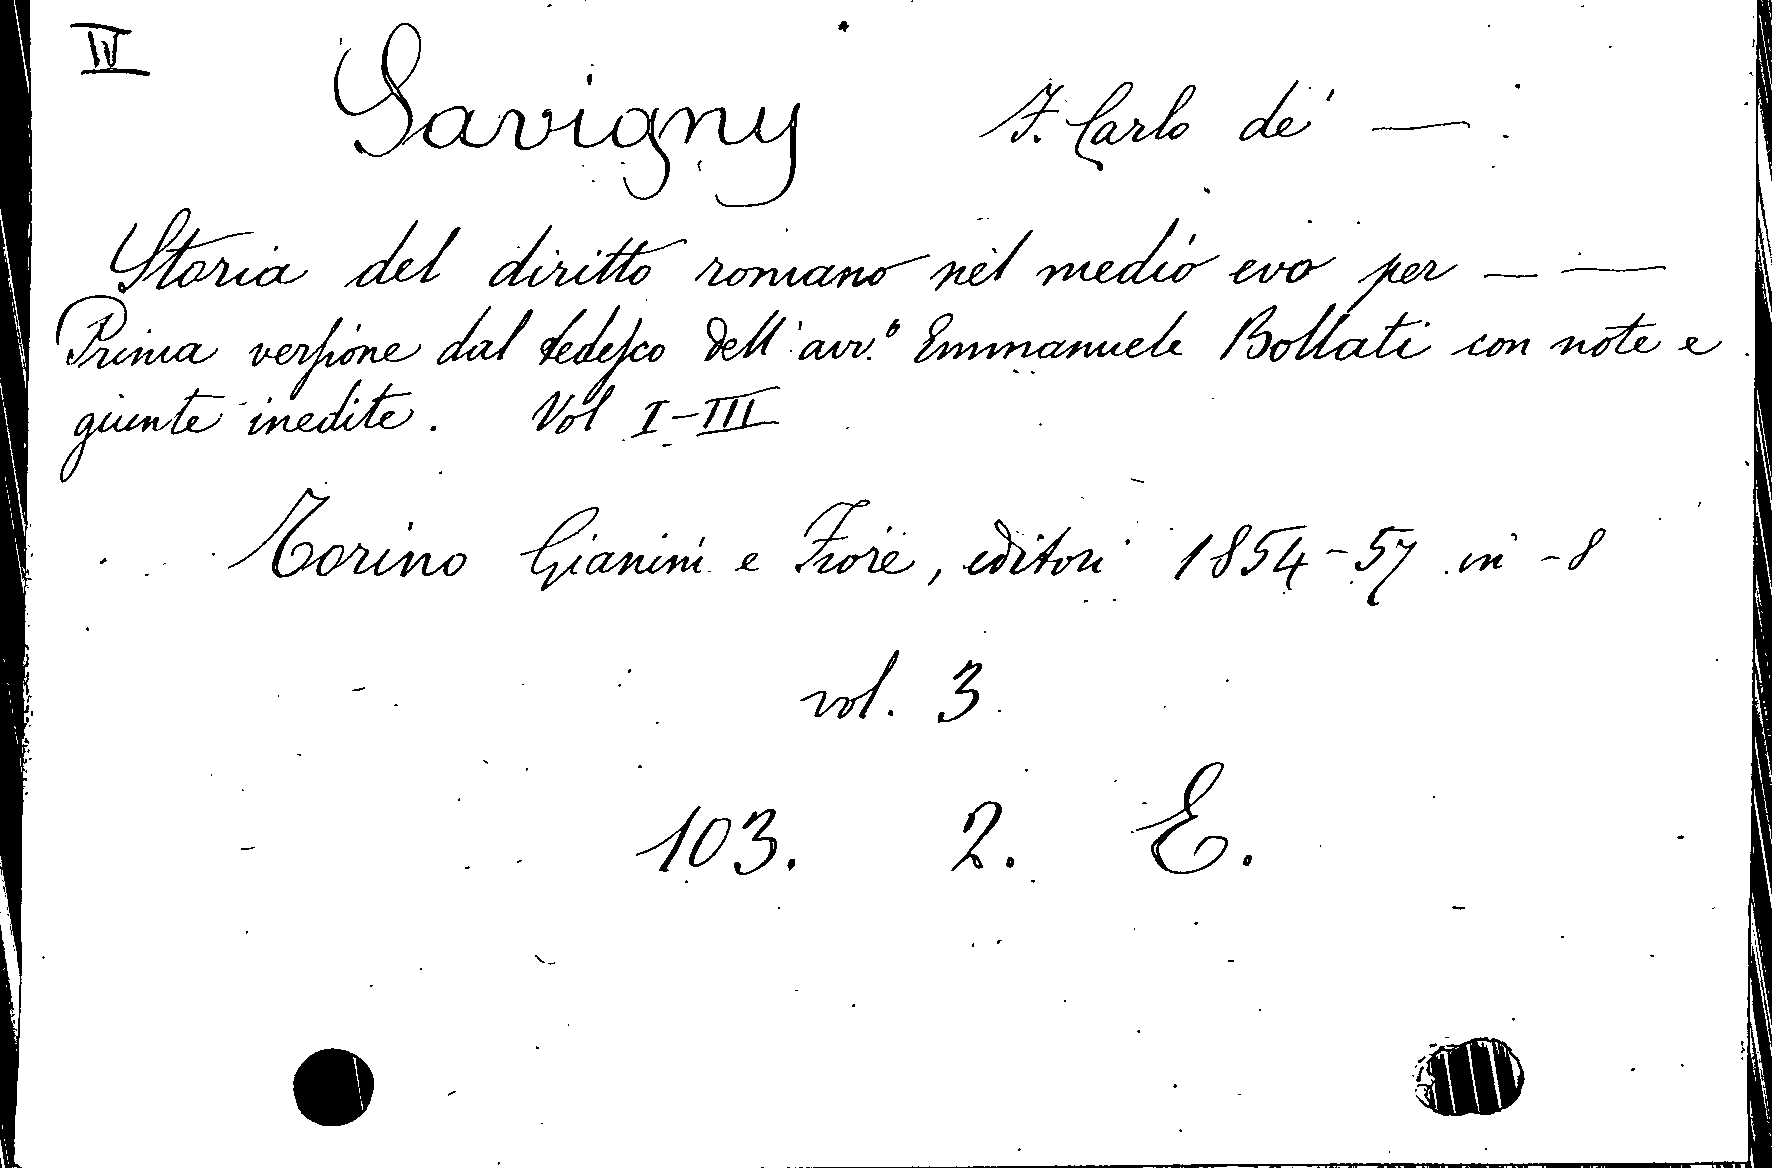 IV
Savigny F. Carlo de' — .
Storia del diritto romano nel medio evo per — —
Prima versione dal tedesco dell' avv.º Emmanuele Bollati con note e
giunte inedite. Vol I-III
Torino Gianini e Fiore, editori 1854-57 in -8
vol. 3
103. 2. E.